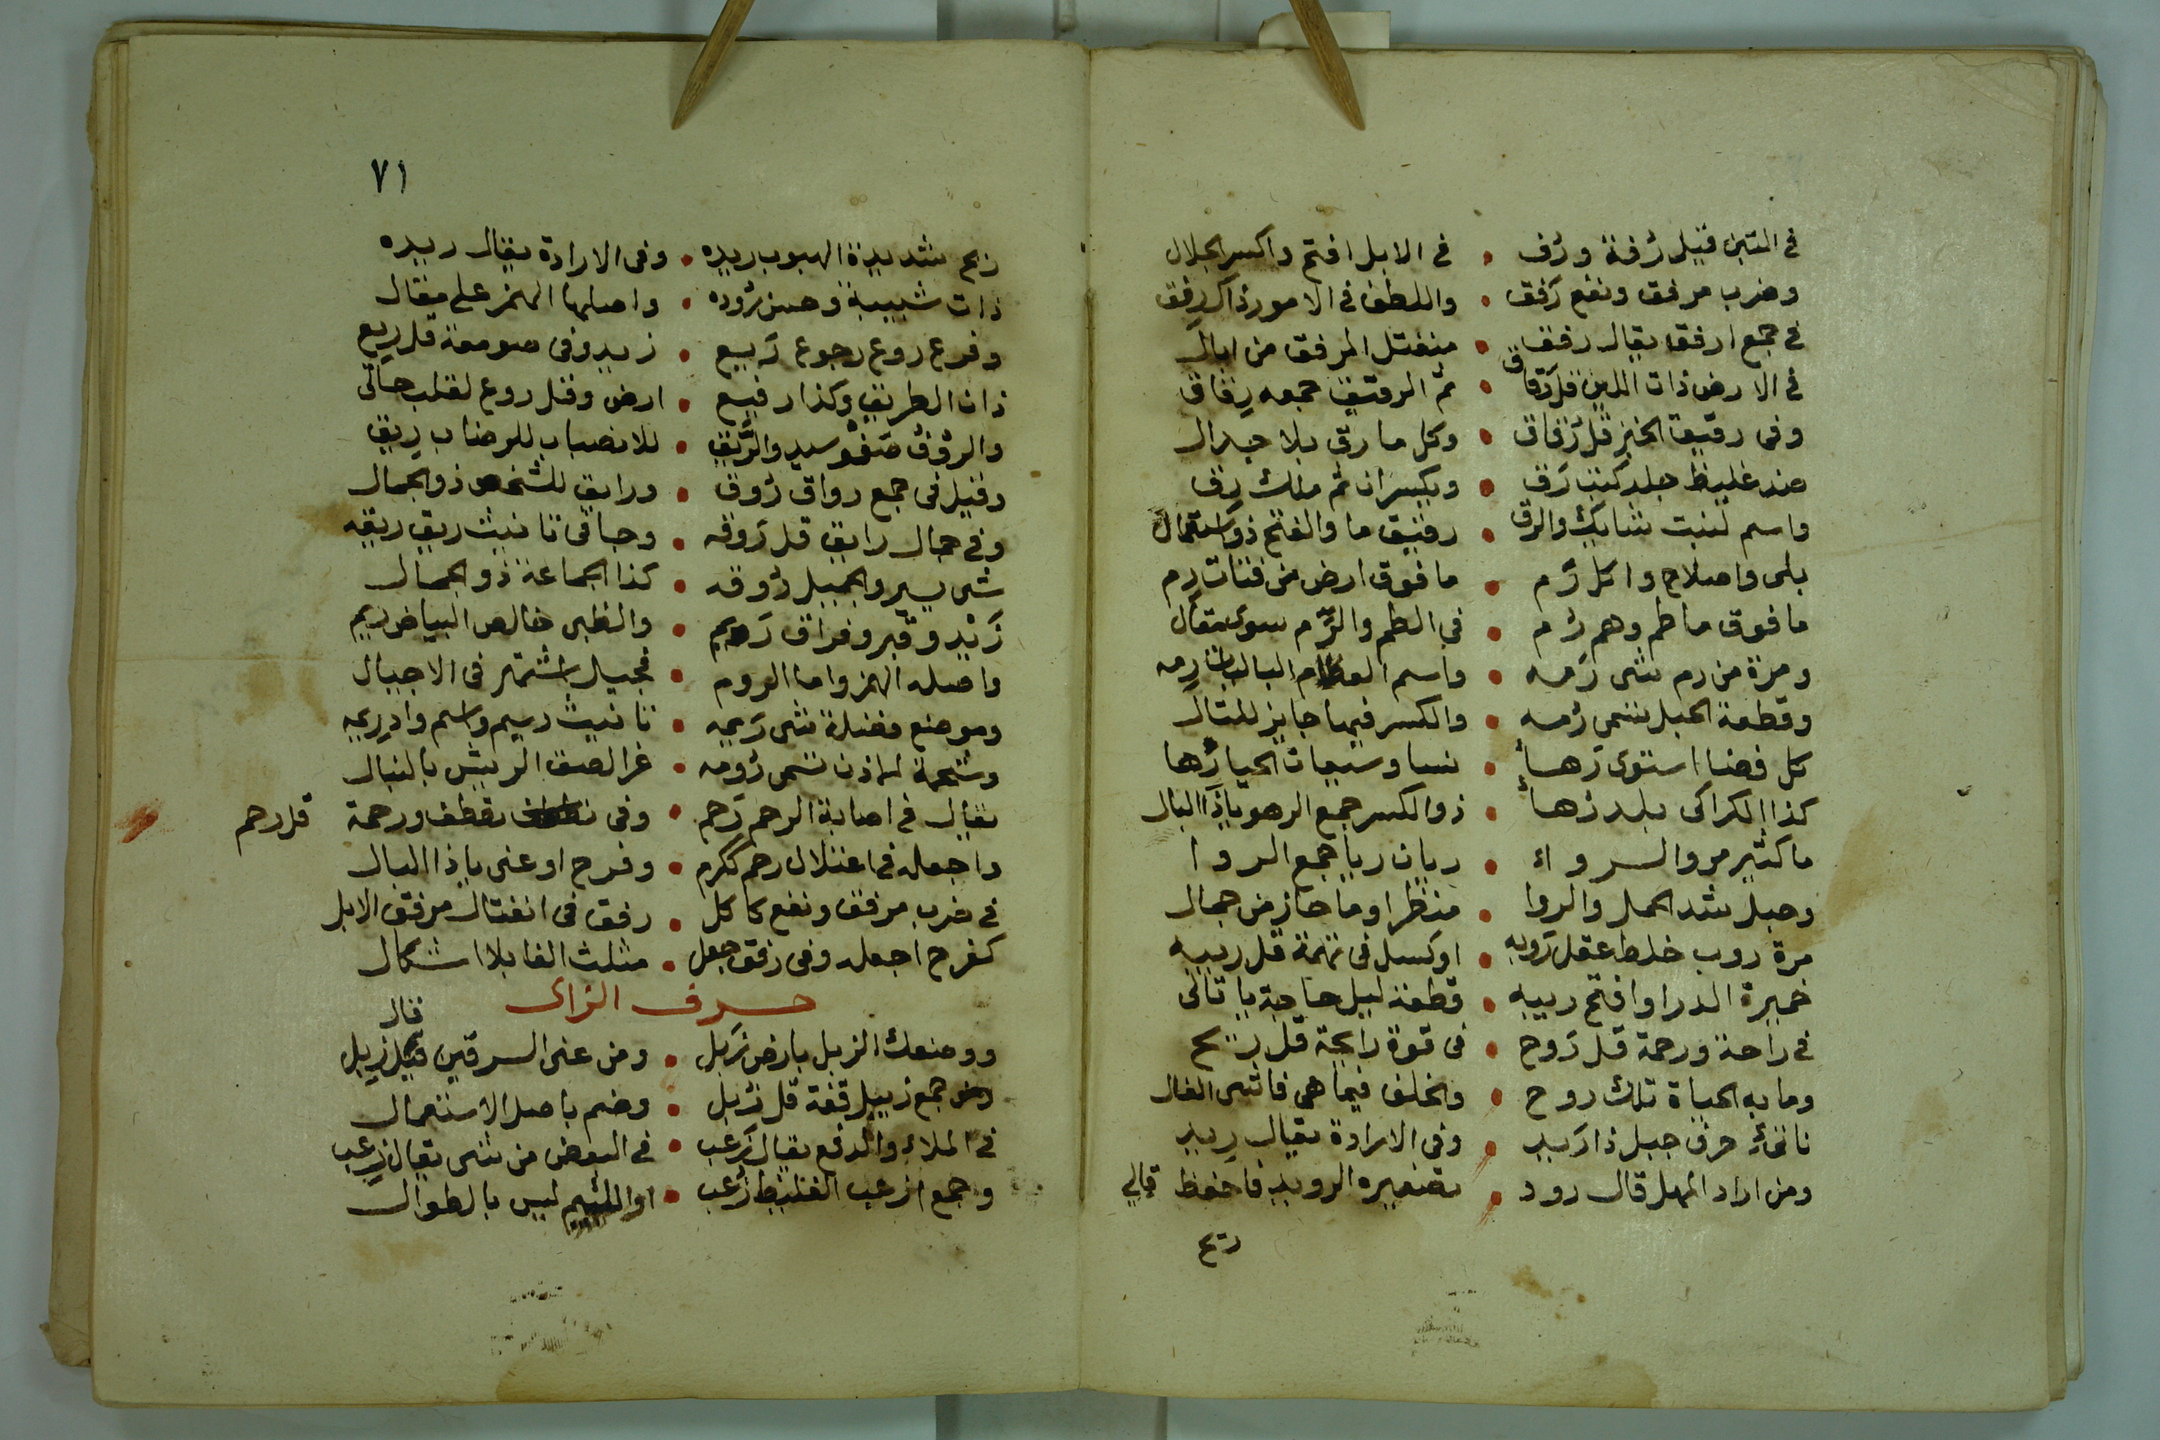 في التبن قيل رُفة ورُف • في الابل افتح واكسر لجلال
وضرب مرفق ونفع رَفق • واللطف في الامور ذاك رِفق
في جمع ارفق يقال رفق • منفتل المرفق من ابال
في الارض ذات اللين قل رَقاق • ثم الرقيق جمعه رِقاق
وفي رقيقة الخبز قل رُقاق • وكل ما رق بلا جدال
ضد غليظ جلد كتب رَق • ويكسران ثم ملك رِق
واسم لنبت شايك والرق • رقيق ما والفتح ذو استعمال
بلى واصلاح واكل رَم • ما فوق ارض من فتات رِم
ما فوق ما طم وهم رُم • في الطم والرِّم سوى مقال
ومرة من رم شى رَمه • واسم العظام الباليات رِمه
وقطعة الحبل تسمى رُمه • والكسر فيها جايز للتال
كل فضا استوى رَهاءُ • نسا وسيعات الحيا رُها
كذا الكراكى بلد رُهاءُ • ذو الكسر جمع الرهو ياذا البال
ما كثير مرو الرواء • ريان ريا جمع الروا
وحبل شد الحمل والروا • منظرا وما حاز من جمال
مرة روب خلط عقل رَوبه • او كسل في تهمة قل ريبه
خميرة الدر ا وافتح ريبه • قطعة ليل حاجة يا تالى
في راحة ورحمة قل رَوح • في قوة رايحة قل ريح
وما به الحياة تلك روح • وخلف فيما هي فانثى الغال
ناتئ حرف جبل ذا رَيد • وفي الارادة يقال رِيد
ومن اراد المهل قال رود • تصغيره الرويد فاحفظ قالي
ريح
٧١
ريح شديدة الهبوب ريده • وفي الارادة يقال ريده
ذات شبيبة وحسن رُوده • واصلها الهمز على مقال
وفرع روع رجوع رَيع • زيد وفي صومعة قل رِيع
ذات الطريق وكذا رفيع • ارض وقل روع لقلب حالى
والروق صفو سيد والرَّيق • للانصباب للرضاب رِيق
وقيل في جمع رواق رُوق • ورايق للشخص ذو الجمال
وفي جمال رايق قل رَوقه • وجا في تانيث ريق ريقه
شى يسير والجميل رُوقه • كذا الجماعة ذو الجمال
زَيد وقبر وفراق رَيم • والظبى خالص البياض ريم
واصله الهمز واما الروم • فجيل اشتهر في الاجيال
وموضع فضلة شى رَيمه • تانيث ريم واسم واد رِيمه
وشحمة الاذن تسمى رُومه • غرا لصق الريش بالنبال
يقال في اصابة الرحم رَحم • وفي تعطف ورحمة قل رحم
واجعله في اعتلال رحم ككرم • وفرح او عنى ياذا البال
في ضرب مرفق ونفع كاكل • رفق في انفتال مرفق الابل
كفرح اجعله وفي رفق جعل • مثلث الفا بلا اشكال
حرف الزاى
ووضعك الزبل بارض زَبل • ومن عنى السرقين قال قيل زِبل
وض جمع زبيل قفة قل زُبل • وضم باصل الاستعمال
في الملاء والدفع يقال زَعب • في البعض من شى يقال زِعب
وجمع ازعب الغليظ زُعب • او اللئيم ليس بالطوال